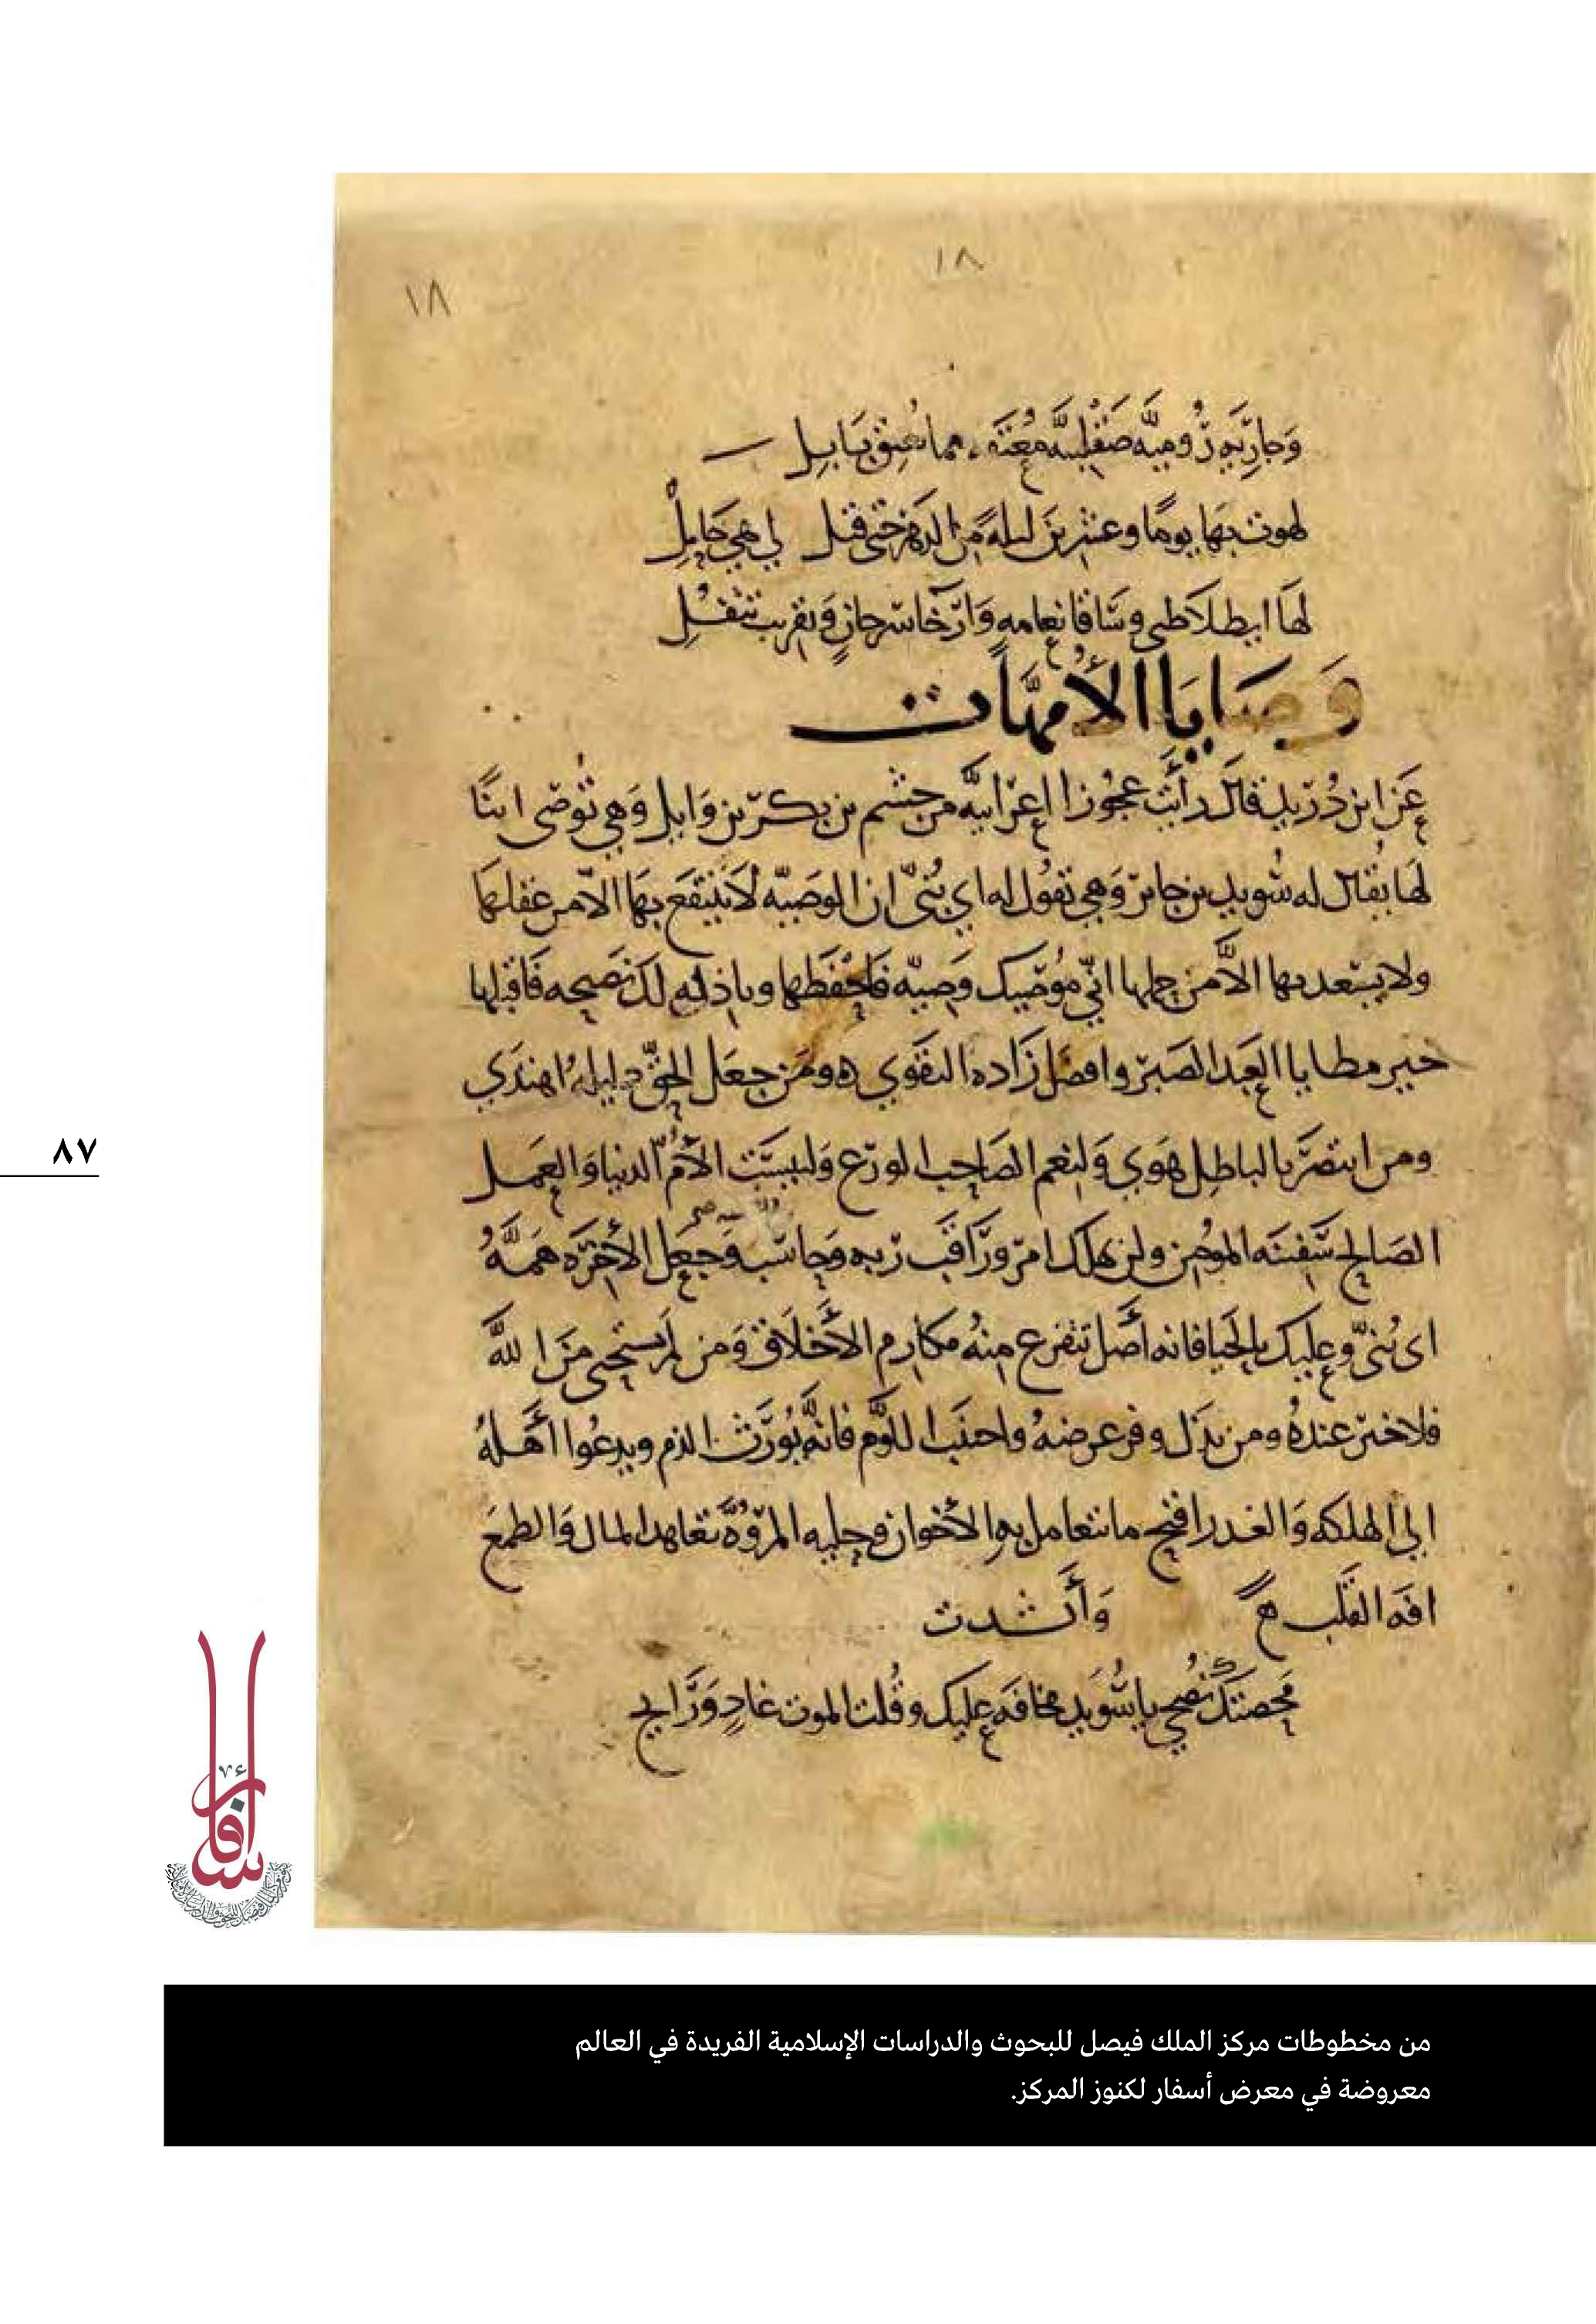 ١٨
١٨
وَجارِيَه رُوميَّه صَقْلبيَّه مُعتقَه مما بِبَابِل
لهوت بهَا يومًا وعشرين ليلةً مِن الدَهر حَتى قيل لي هي حَامِل
لهَا ايطلا ظبي وسَاقا نعامه وَارخا سرحانٍ وتقريب تتفُل
وَصَايَا الأُمهَّات
عَن ابن دُريد قال رأيت عجُوزا اعرابيَّه من جشم بن بكر بن وَايل وَهي تُوصى ابنًا
لهَا يُقال له سُويد بن جابر وَهي تقُول له اي بُنيّ ان الوصيّه لا ينتفع بهَا الاّ من عقلها
ولا يسعد بها الاَّ من حملها انّي مُوصيك وَصيّه فاحفظها وباذله لك نصيحه فاقبلها
خير مطايا العَبد الصَبر وافضل زَاده التقوي ومَن جعَل الحقّ دليلهُ اهتدي
ومن انتصَر بالباطِل هَوي وَلنعم الصَاحب الورَع وَلبيسَت الأمُّ الدنيا وَالعمَل
الصَالح سَفينَه المومن ولن يهلك امرو رَاقَب ربه وَحاسَب وَجَعَل الأخرَه همَّهُ
اى بُنيّ وعليك بالحَيا فانه أصل تتفرع منهُ مكارم الأخلاق وَمن لم يستحيى مَن الله
فلا خير عندهُ ومن بذل وفر عرضهُ واجتنَب اللوم فانَّهُ يُورّث الذم ويدعُوا أهلهُ
الى الهلكه وَالغدر اقبح ما تتعامل بهِ الأخوان وحليه المرُوَّة تعاهد المال وَالطمع
افَه القلب ه وَأنشدت
محصتك نُصحي يا سُويَد مخافَه عليك وقُلت الموت غادٍ وَرَايح
٨٧
أسفار
من مخطوطات مركز الملك فيصل للبحوث والدراسات الإسلامية الفريدة في العالم
معروضة في معرض أسفار لكنوز المركز.